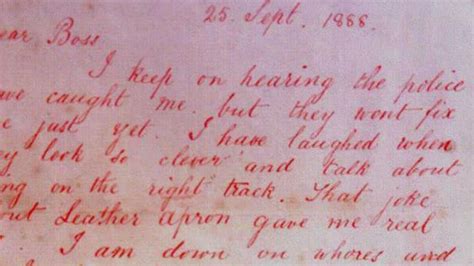 25. Sept. 1888.
ear Boss
I keep on hearing the police
ave caught me but they wont fix
e just yet. I have laughed when
ey look so clever and talk about
ing on the right track. That joke
out Leather apron gave me real
. I am down on whores and